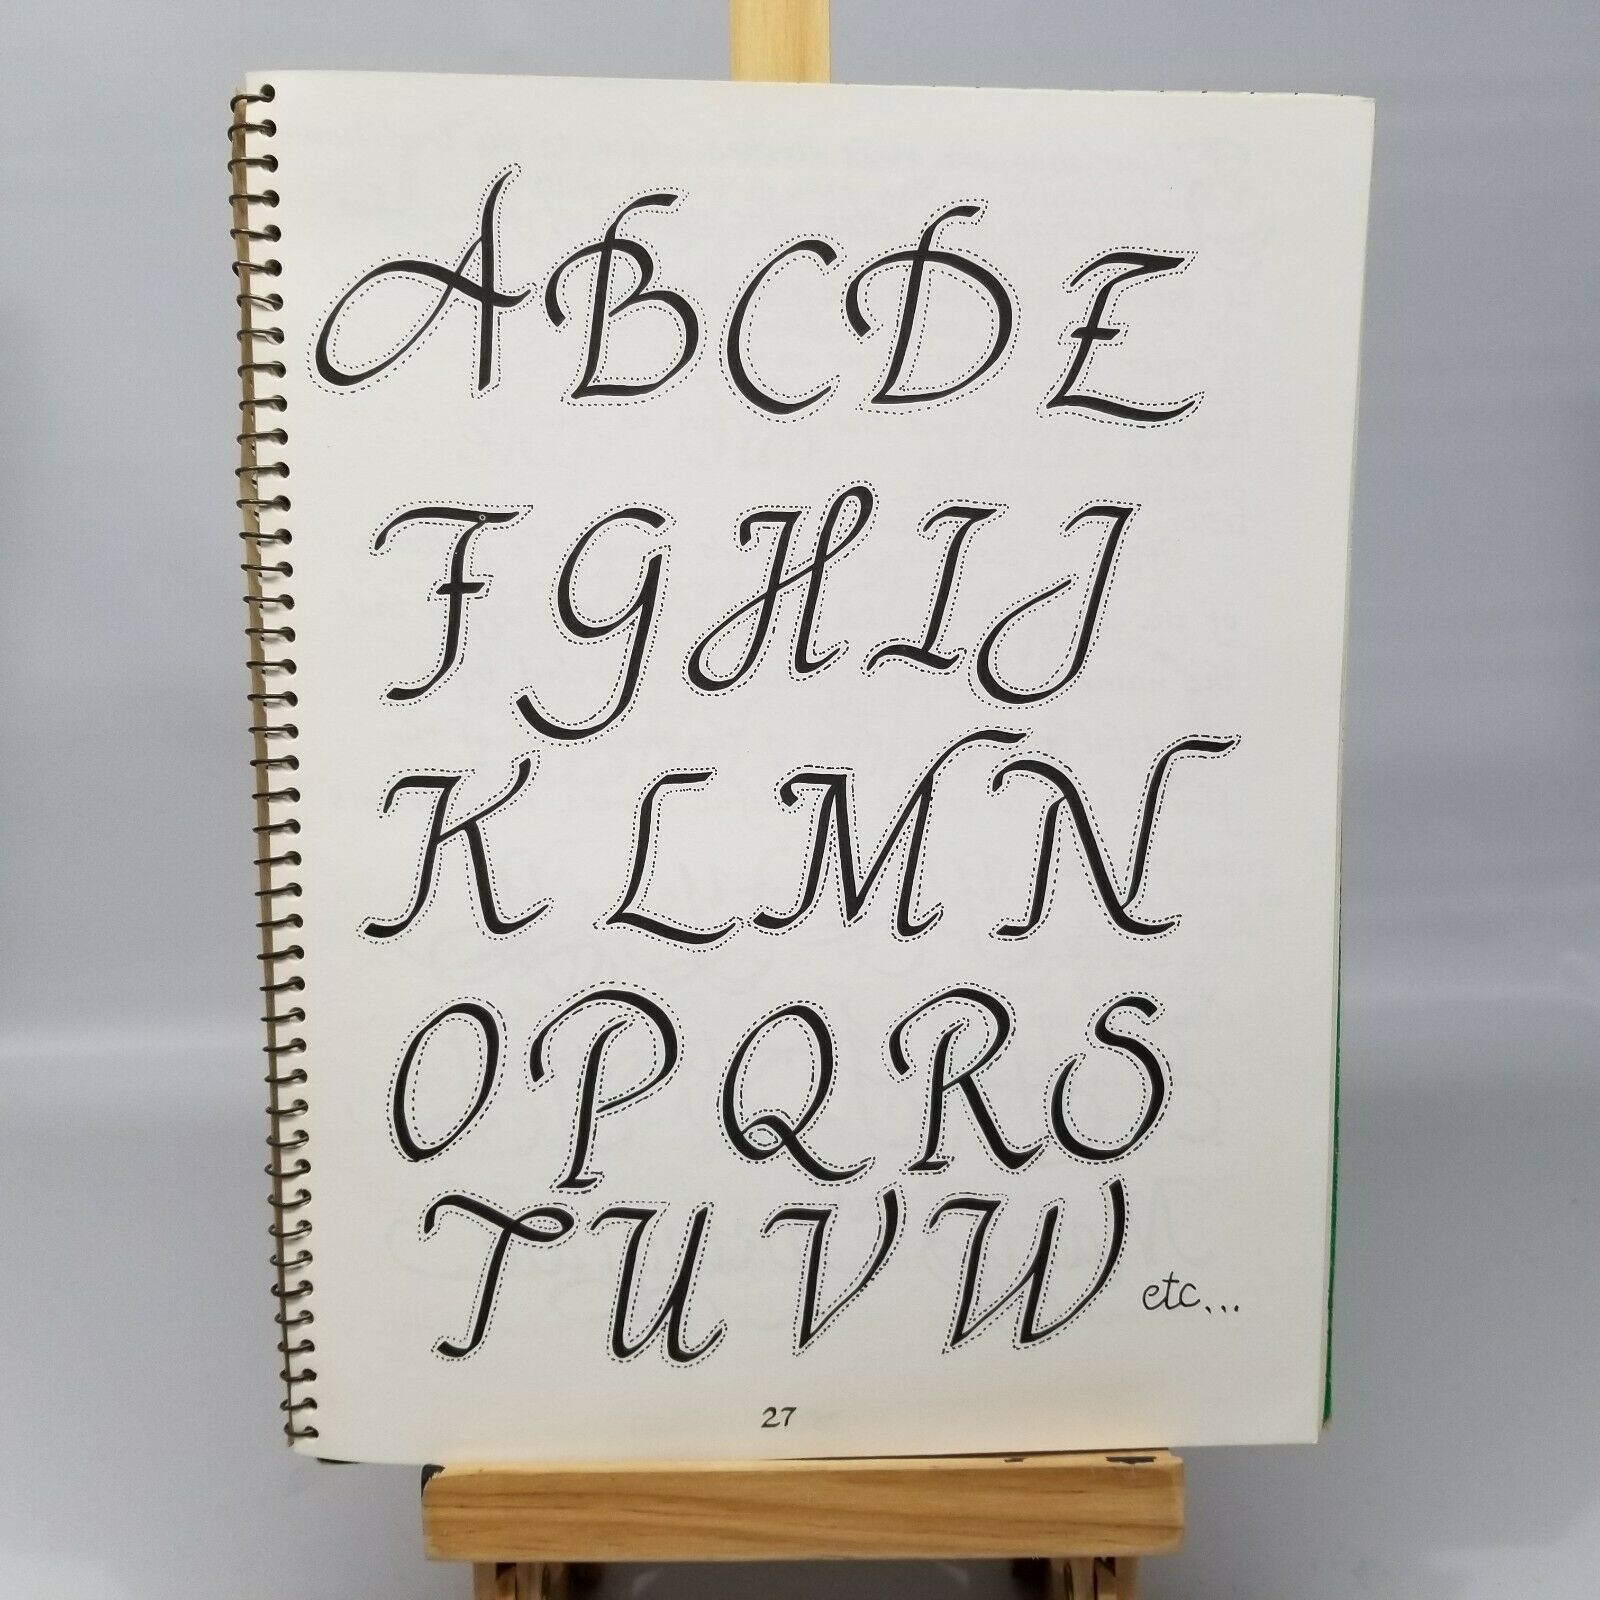 A B C D E
F G H I J
K L M N
O P Q R S
T U V W etc...
27